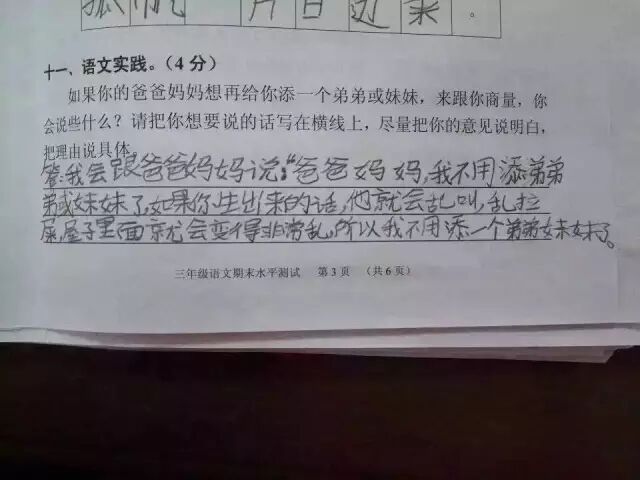 片百边来。
十一、语文实践。（4分）
如果你的爸爸妈妈想再给你添一个弟弟或妹妹，来跟你商量，你
会说些什么？请把你想要说的话写在横线上，尽量把你的意见说明白，
把理由说具体。
答：我会跟爸爸妈妈说：“爸爸妈妈，我不用添弟弟
弟或妹妹了，如果你生出来的话，他就会乱叫，乱拉
屎，屋子里面就会变得非常乱，所以我不用添一个弟弟妹妹了。
三年级语文期末水平测试 第3页 （共6页）